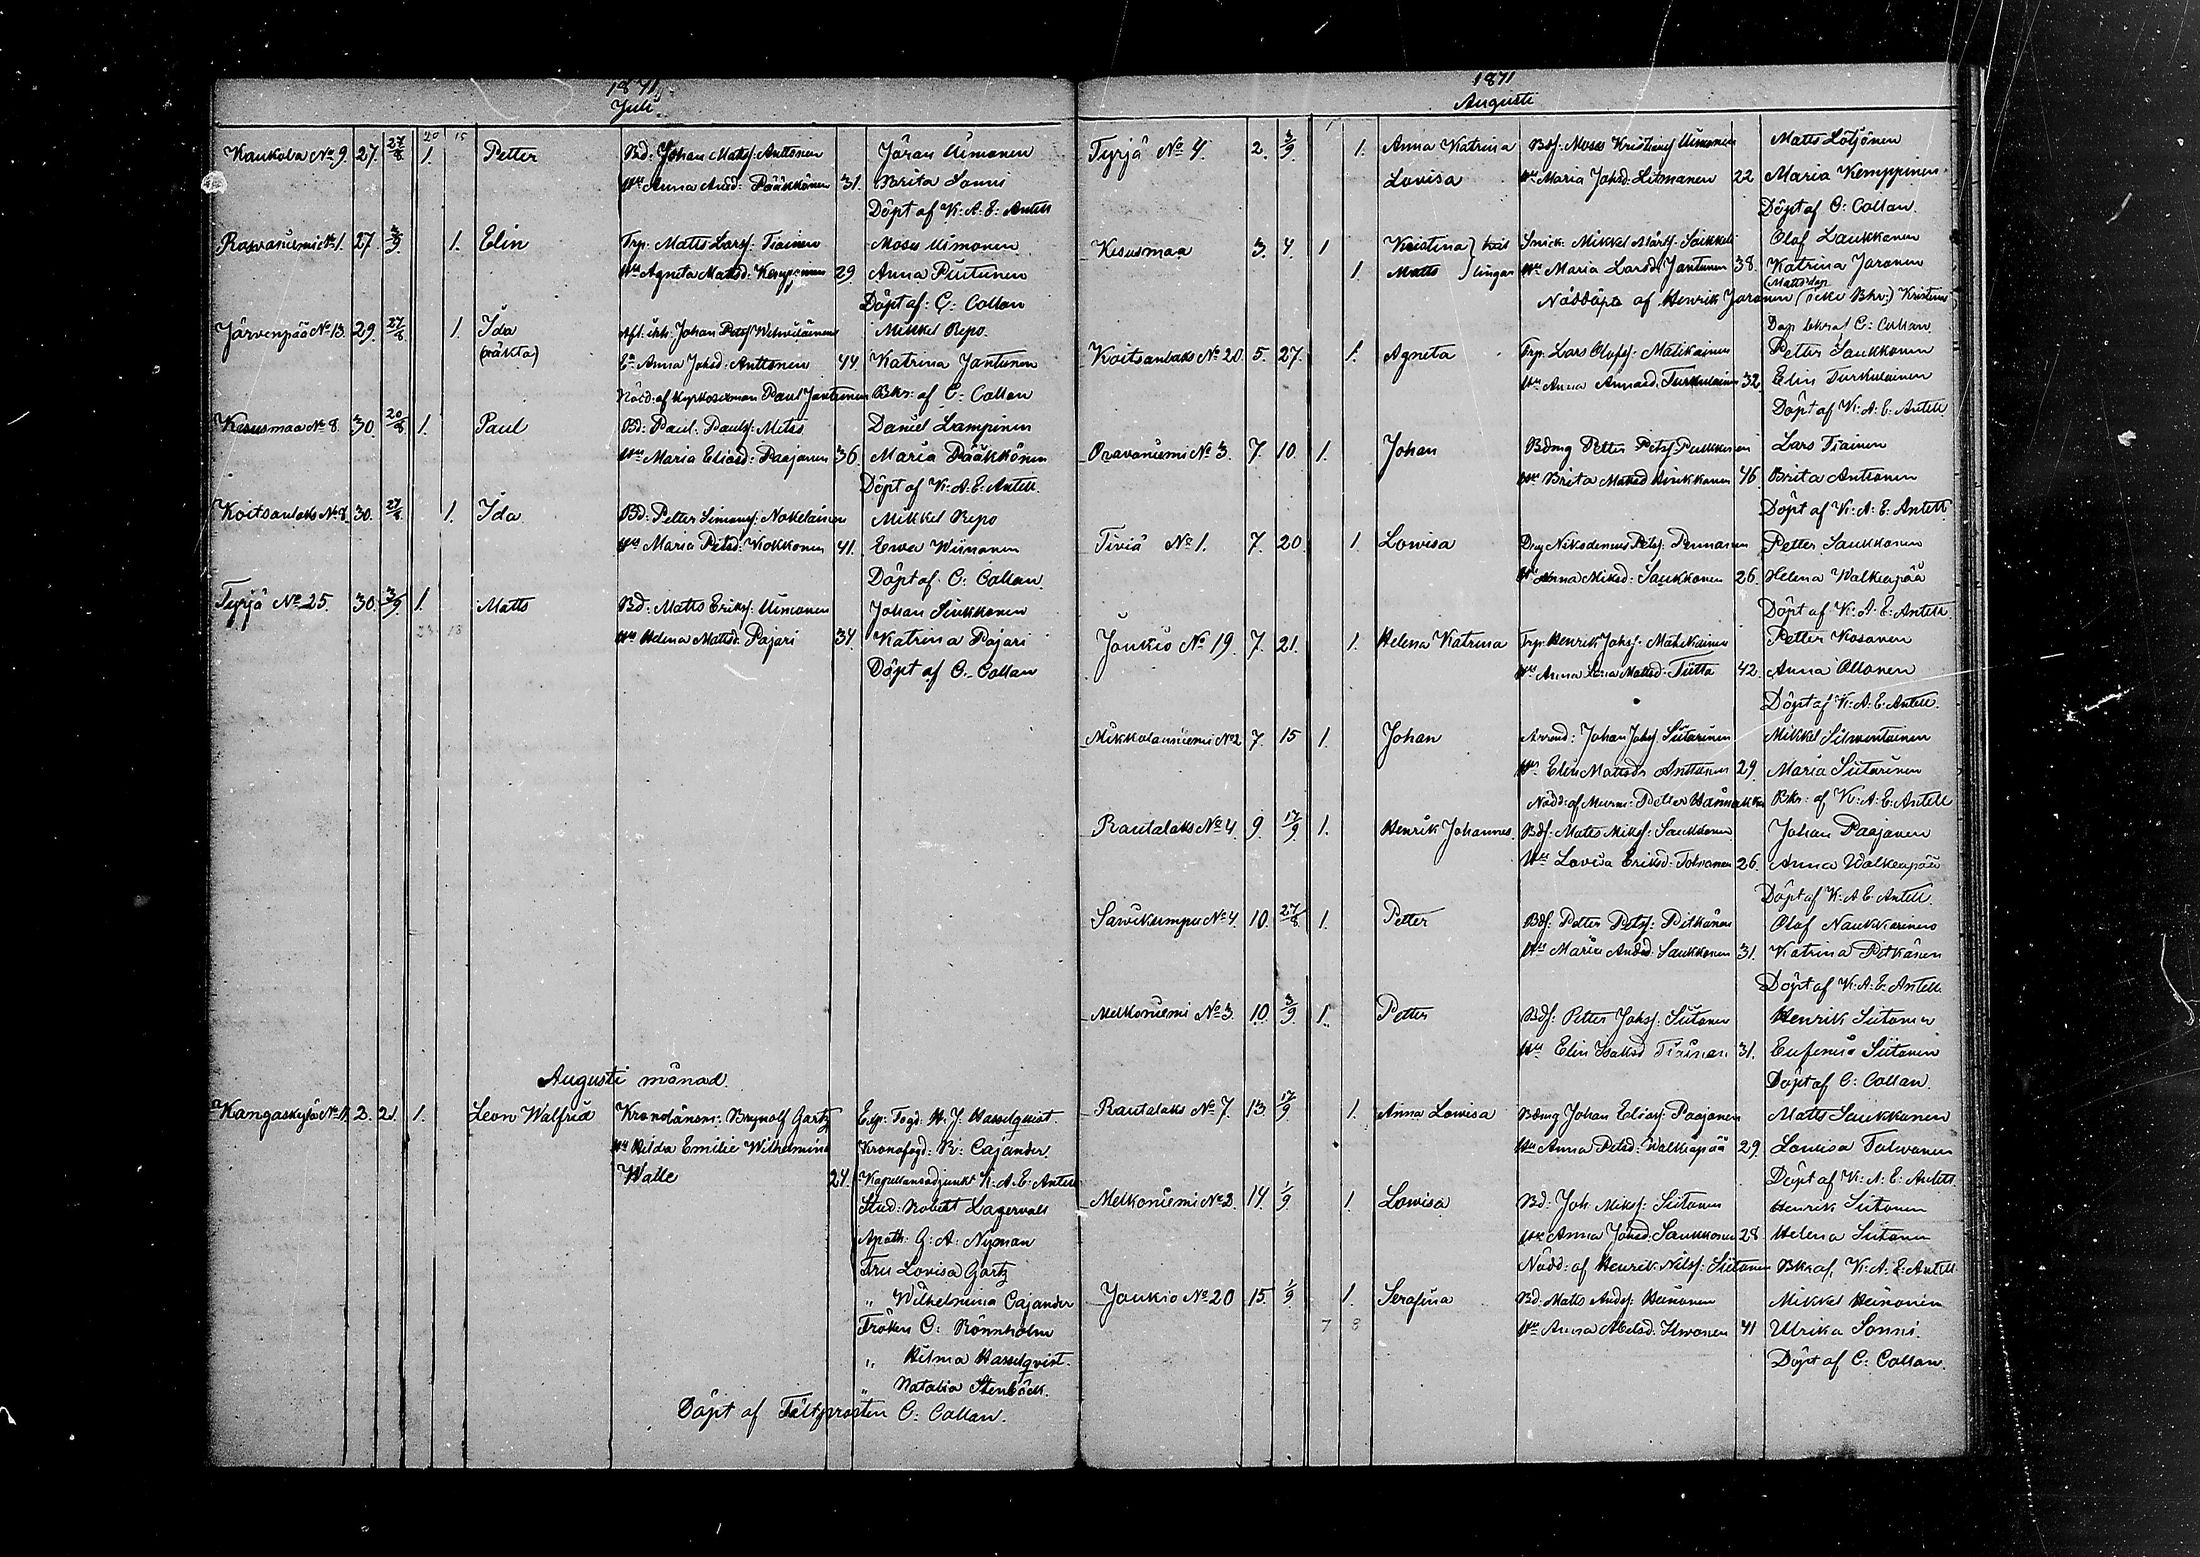 1871
Juli
20 15
Kaukola No 9. 27. 27/8 1. Petter Bd: Johan Matsf: Anttonen Jöran Uimonen
Hu Anna Andd: Pääkkönen 31. Brita Sonni
Döpt af K: A: E: Antell
Rasvaniemi No 1. 27. 3/9 1. Elin Trp: Matts Larsf: Tiainen Moses Uimonen
Hu Agneta Mattsd: Kemppinen 29. Anna Piutunen
Döpt af: C: Collan
Järvenpää No 13. 29. 27/8 1. Ida Johan Petsf Mikkel Repo.
(oäkta) Ea Anna Johsd: Anttonen 44. Katrina Jantunen
Nöd: af Kyrkoverman Paul Jantunen Bkr: af C: Collan
Kesusmaa No 8. 30. 20/8 1. Paul Bd: Paul: Paulsf: Mitts Daniel Lampinen
Hu Maria Eliasd: Paajanen 36 Maria Pääkkönen
Döpt af K: A: E: Antell.
Koitsanlaks No 8. 30. 27/8 1. Ida Bd: Petter Simonsf: Nokelainen Mikkel Repo
Hu Maria Petsd: Kokkonen 41. Ewa Wiinanen
Döpt af C: Collan
Tyrjä No 25. 30. 3/9 1. Matts Bd: Matts Eriksf: Uimonen Johan Sinkkonen
Hu Helena Mattsd: Pajari 34. Katrina Pajari
Döpt af C: Collan
Augusti månad.
Kangaskylä No 1. 2. 21. 1. Leon Walfrid Kronolänsm: Brynolf Gartz Exp: Fogd: H. J. Hasselquist.
Hu Hilda Emilie Wilhelmina Kronofogd: R: Cajander
Walle 24. Kapellansadjunkt K: A: E: Antell
Stud: Robert Lagervall
Apoth: G: A: Nyman
Fru Lovisa Gartz
" Wilhelmina Cajander
Fröken C: Rönnholm
" Hilma Hasselqvist.
" Natalia Stenbäck.
Döpt af Fältprosten C: Collan.
1871
Augusti
Tyrjä No 4. 2. 3/9. 1. Anna Katrina Bdsf: Moses Kristiansf Uimonen Matts Lötjönen
Lovisa Hu Maria Johsd: Litmanen 22 Maria Kemppinen
Döpt af C: Collan.
Kesusmaa 3. 4. 1 Kristina } tvil Snick: Mikkel Mårtsf: Saikkel Olof Laukkanen
1. Matts } lingar Hu Maria Larsd: Jantunen 38. Katrina Jaronen
Nöddöpt af Henrik Jaronen (icke Bkr:) Kristinas
Dop bkraf C: Collan.
Koitsanlaks No 20. 5. 27. 1. Agneta Trp: Lars Olofsf: Matikainen Petter Saukkonen
Hu Anna Turkulainen 32. Elin Turkulainen
Döpt af K: A: E: Antell.
Oravaniemi No 3. 7. 10. 1. Johan Bdmg Petter Petsf Pulkkinen Lars Tiainen
Hu Brita Matsd Hinkkanen 46. Brita Antionen
Döpt af K: A: E: Antell.
Tiviä No 1. 7. 20. 1. Lowisa Drg Nikodemus Petsf: Pennanen Petter Saukkonen
Hu Anna Miksd: Saukkonen 26. Helena Walkeapää
Döpt af K: A: E: Antell.
Joukio No 19. 7. 21. 1. Helena Katrina Trp: Henrik Johsf: Matikainen Petter Kosonen
Hu Anna Lena Mattsd: Tutta 42. Anna Ollonen
Döpt af K: A: E: Antell.
Mikkolanniemi No 2 7. 15 1. Johan Arrend: Johan Johsf Siitarinen Mikkel Silventoinen
Hu Elin Mattsdr Anttonen 29. Maria Siitarinen
Nödd: af Murm: Petter Bkr: af K: A: E: Antell
Rautalaks No 4. 9. 17/9 1. Henrik Johannes. Bdsf: Matts Miksf: Saukkonen Johan Paajanen
Hu Lovisa Eriksd: Tolvanen 26. Anna Walkeapää
Döpt af K: A: E: Antell.
Sawikumpu No 4. 10. 27/8 1. Petter Bdsf: Petter Petsf: Pitkänen Olof Naukkarinen
Hu Maria Andsd: Saukkonen 31. Katrina Pitkänen
Döpt af K: A: E: Antell.
Melkoniemi No 3. 10. 3/9. 1. Petter Bdsf: Petter Johsf: Siitonen Henrik Siitonen
Hu Elin Isaksd Tirinen 31. Eufemia Siitonen
Döpt af C: Collan.
Rautalaks No 7. 13. 17/9 1. Anna Lowisa Bdmg Johan Eliasf: Paajanen Matts Saukkonen
Hu Anna Petsd: Walkeapää 29. Lowisa Tolvanen
Döpt af K: A: E: Antell.
Melkoniemi No 2. 14. 1/9 1. Lowisa Bd: Joh Miksf: Siitonen Henrik Siitonen
Hu Anna Johsd: Saukkonen 28 Helena Siitonen
Nödd: af Henrik Nilsf: Siitonen Bkraf. K: A: E: Antell.
Joukio No 20 15. 1/9. 1. Serafina Bd: Matts Andsf: Heinonen Mikkel Heinonen
7 8 Hu Anna Abelsd: Ilwonen 41 Ulrika Sonni.
Döpt af C: Collan.